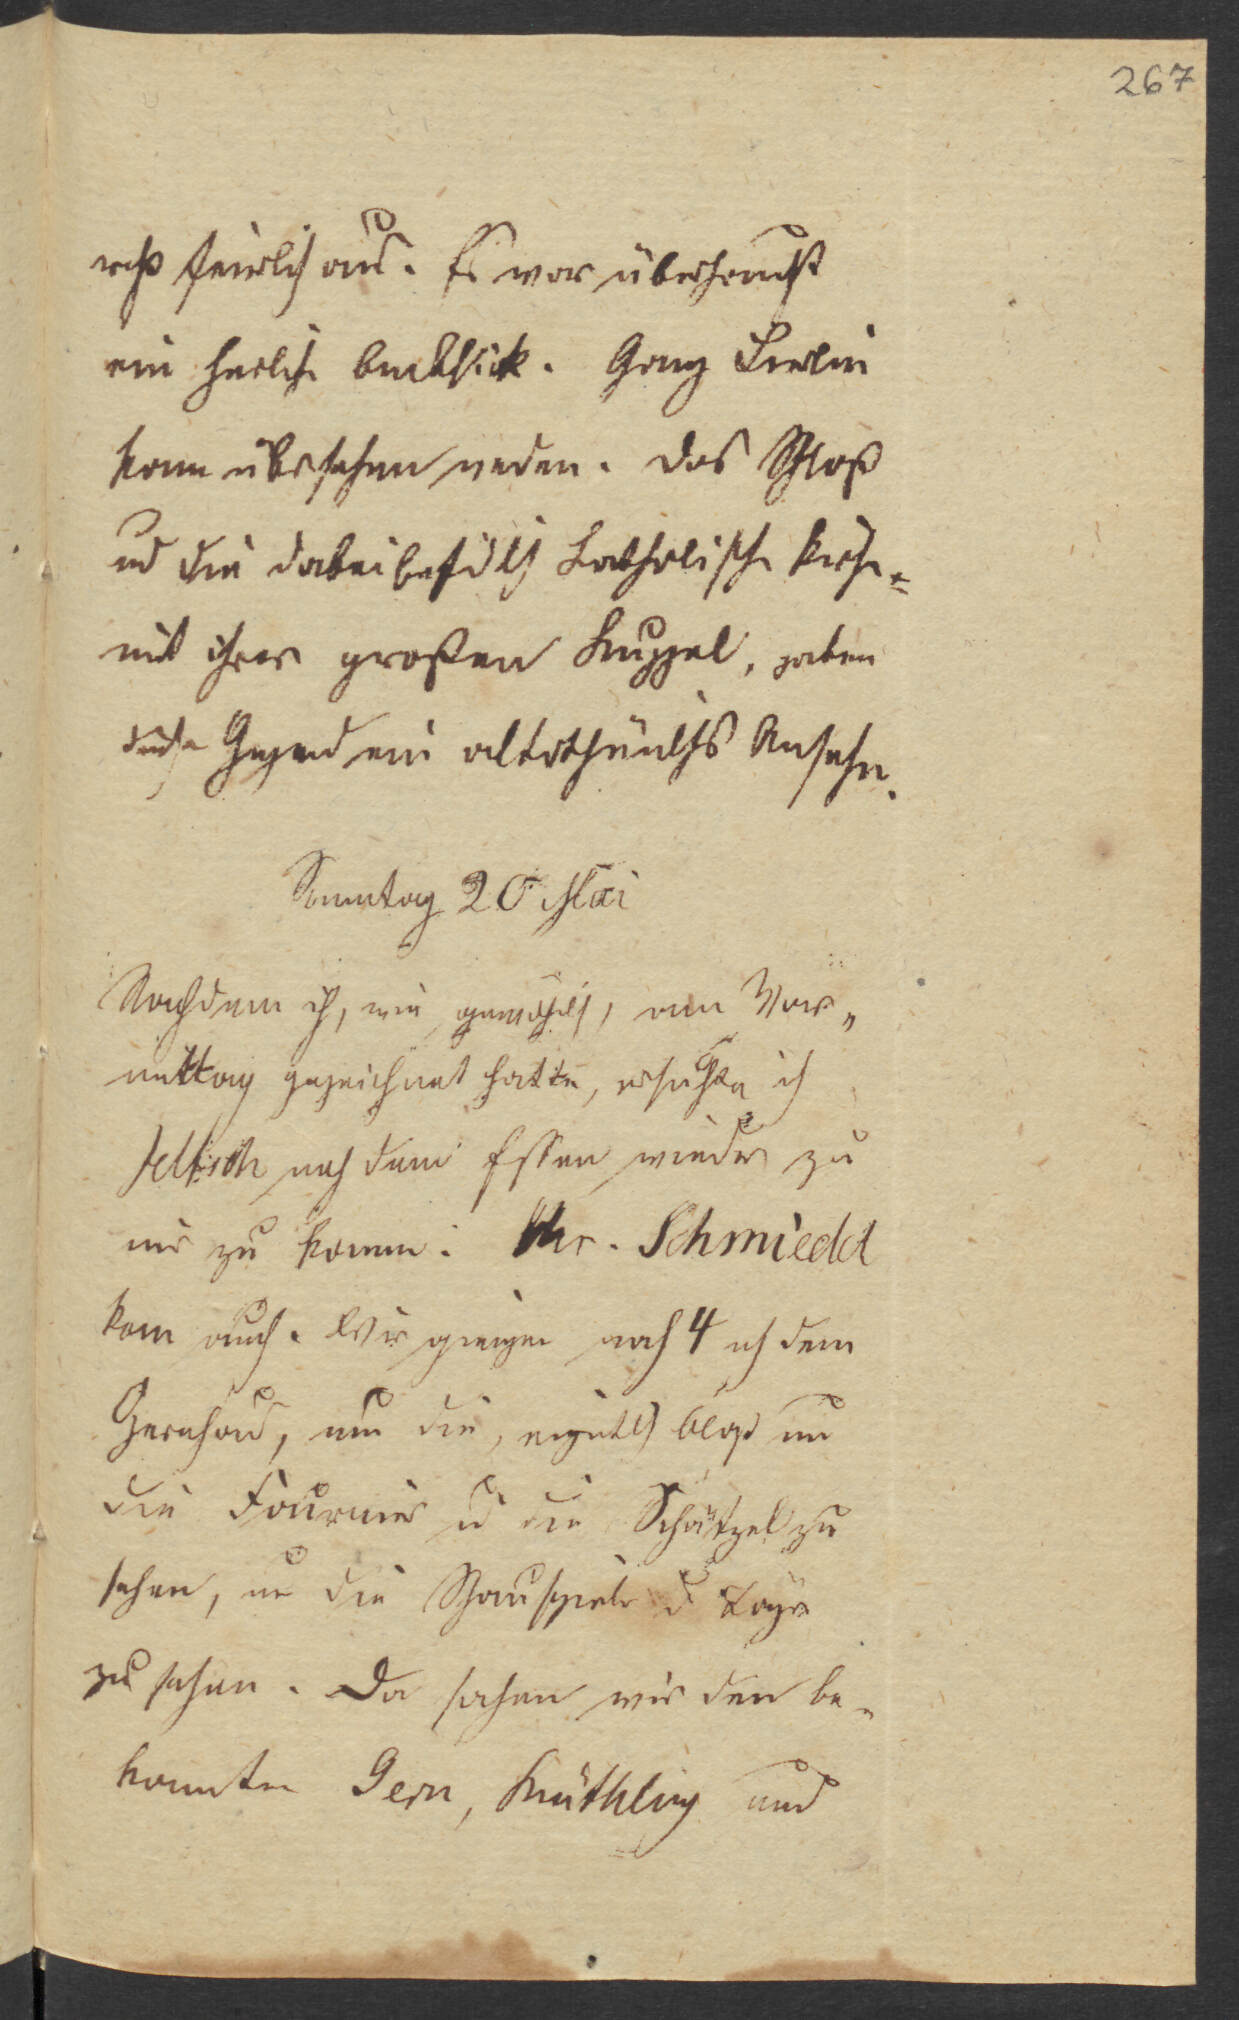 267
recht feierlich aus. Es war überhaupt
ein herlicher Anblick. Ganz Berlin
kann übersehen werden. Das Schloß
und die dabei befindliche Katholische Kirche
mit ihrer großen Kuppel, gaben
dieser Gegend ein alterthümliches Ansehn.
Sonntag 20 Mai
Nachdem ich, wie gewöhnlich, am Vor„
mittag gezeichnet hatte, ersuchte ich
Jeltsch nach dem Essen wieder zu
mir zu kommen. Hr. Schmiedd
kam auch. Wir giengen nach 4 nach dem
, um die, eigentlich blos um
die Fournier u die Schätzel zu
sehen, um die Schauspieler
zu sehen. Da sahen wir den be-
kannten Gern, Krüthling und